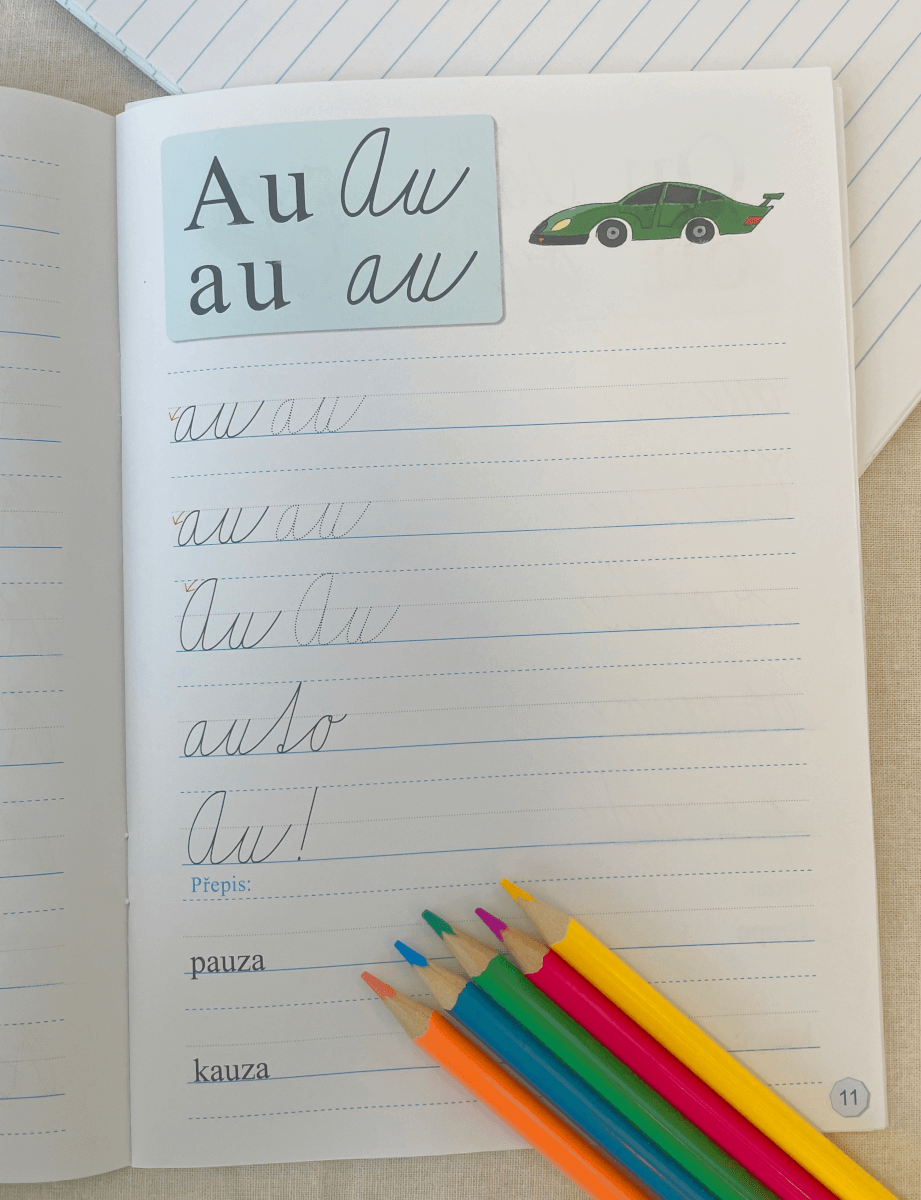 Au Au
au au
au au
au au
Au Au
auto
Au!
Přepis:
pauza
kauza
11